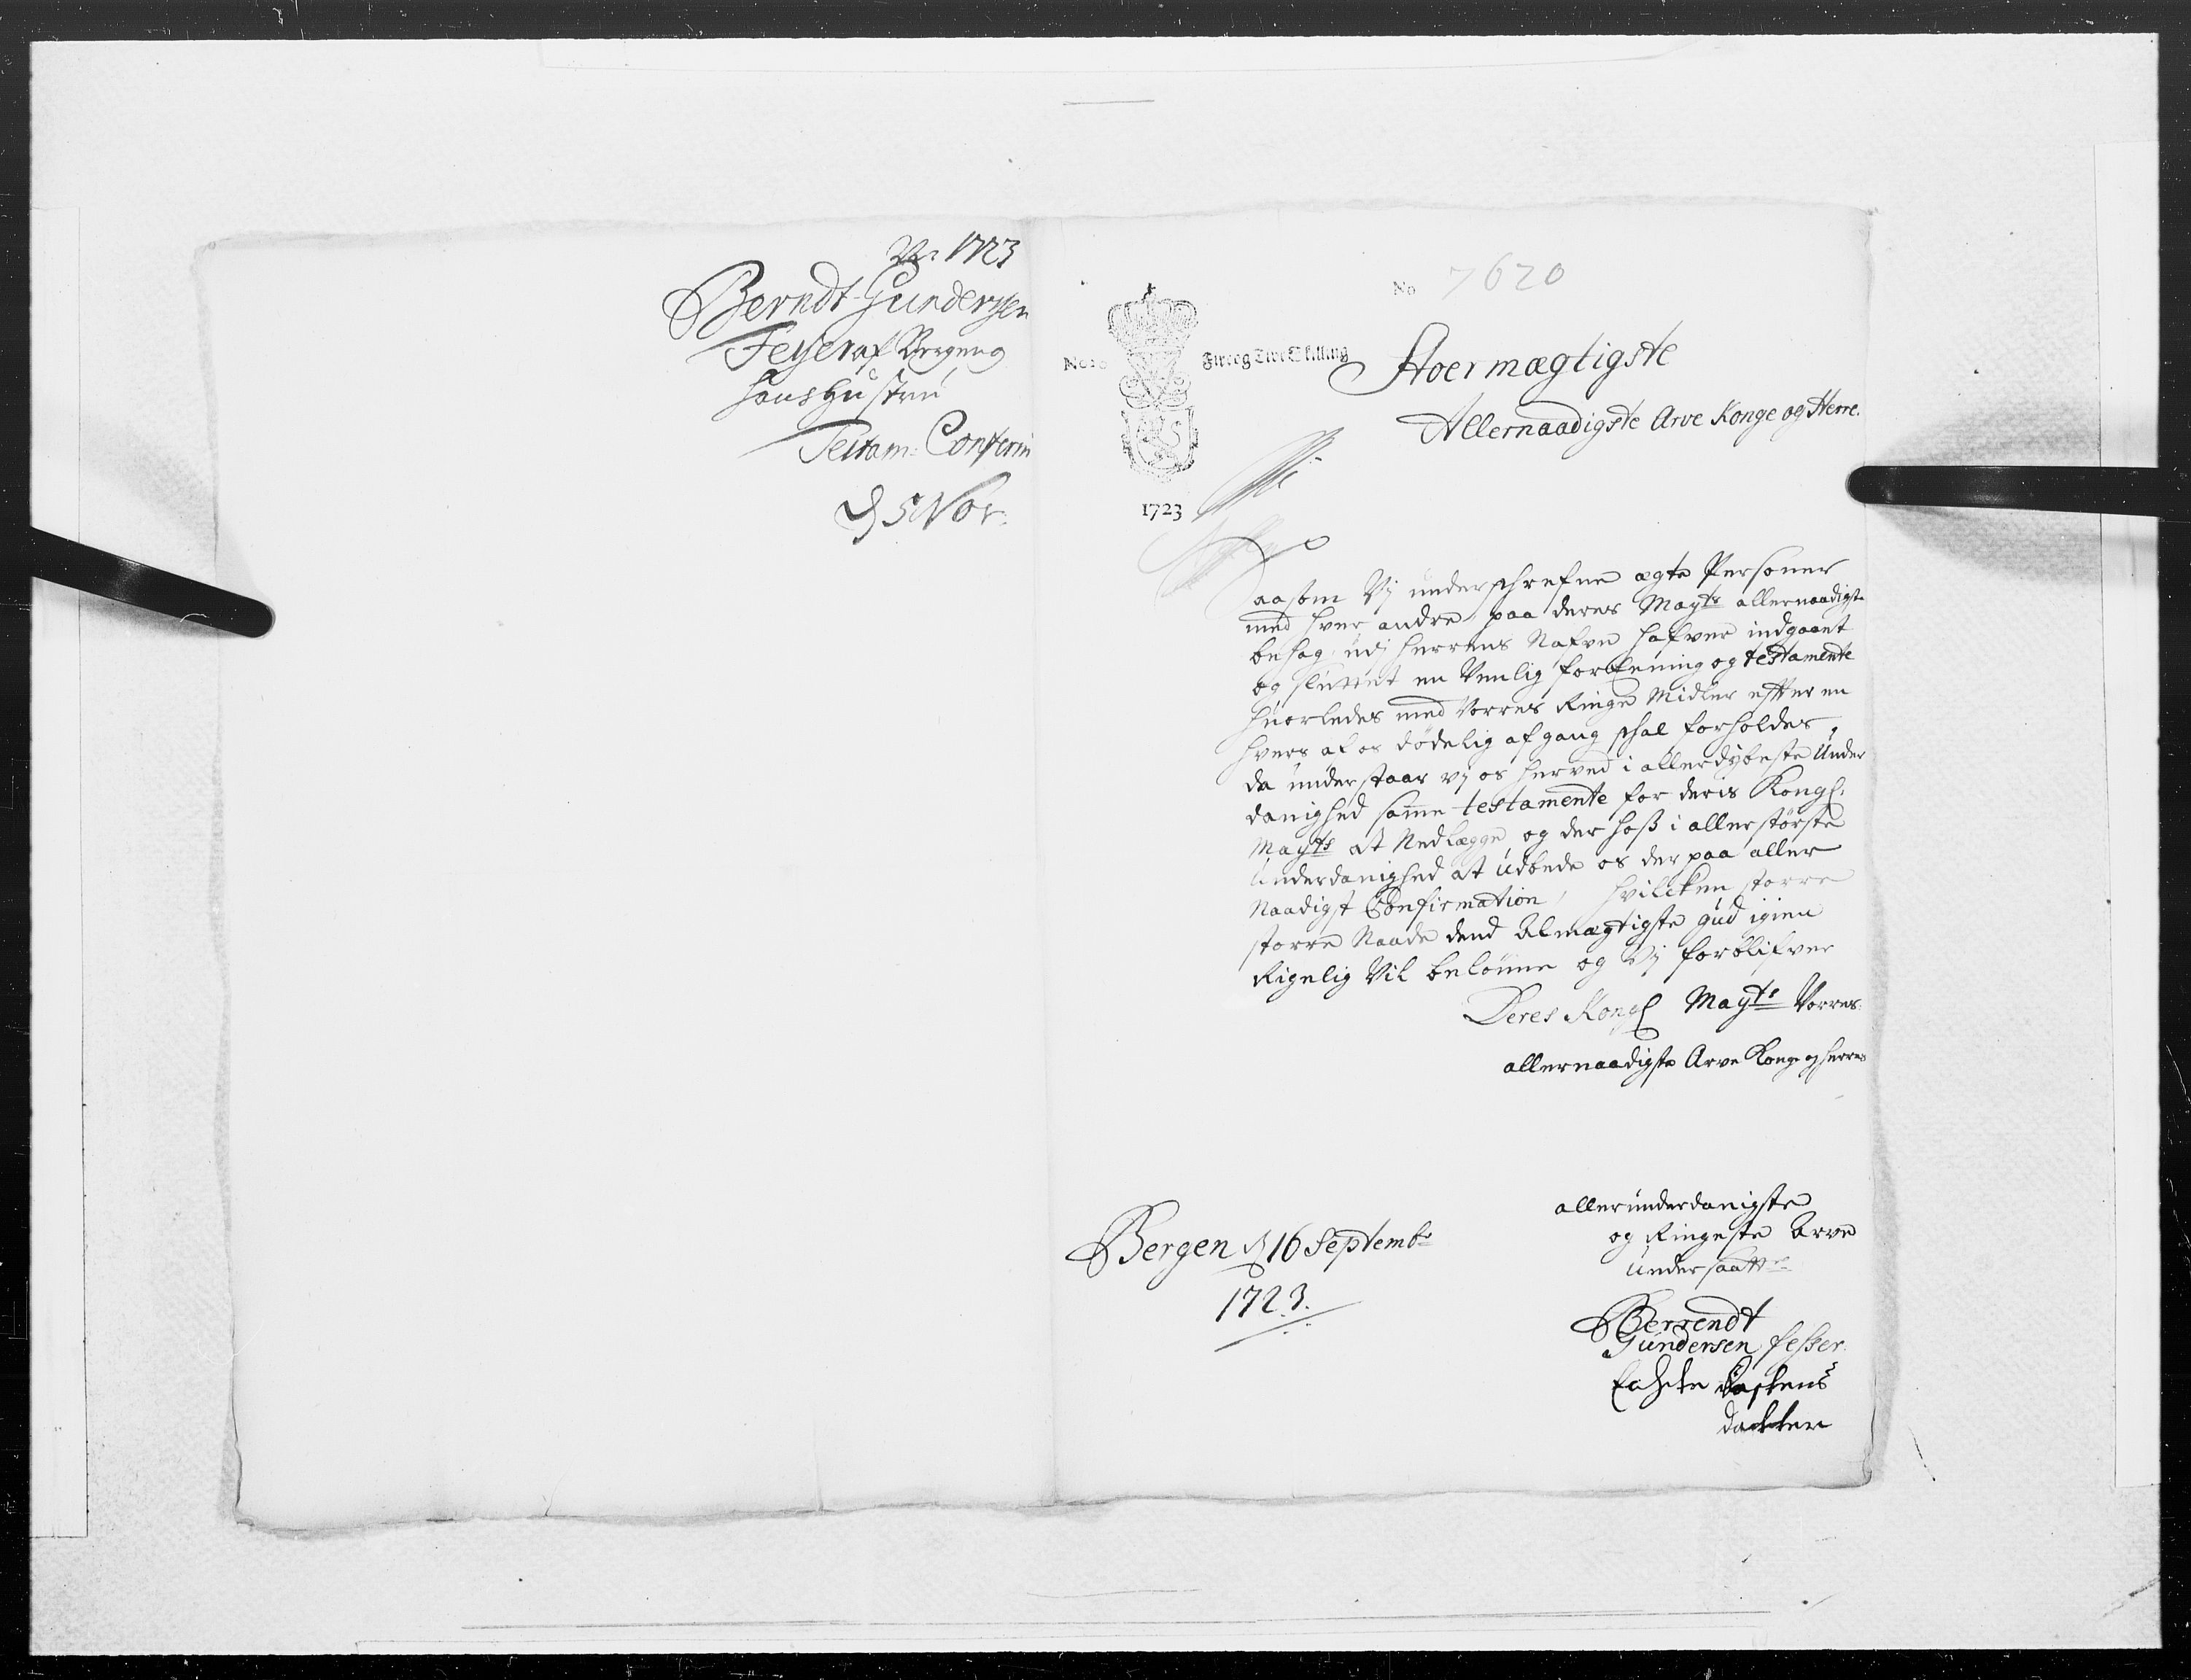 1723
Berndt Gundersen
Feyer af Bergens
hans Hustru
Testam: Confirm
d 5 Nov:
No 7620
Fire og Tive Skilling
1723
Stoermægtigste
Allernaadigste Arve Konge og Herre.
Saasom Vj underschrefne ægte Personer
med hver andre paa deres Mayts allernaadigste
behag, udj Herrens Nafvn hafver indgaaet
og sluttet en Venlig forEening og testamente
huorledes med Vorres Ringe Midler effter en
hvers af os dödelig afgang schal forholdes,
da understaar vj os herved i allerdybeste Under
danighed samme testamente for deris Kongl:
Mayts at Nedlægge, og der hoß i allerstörste
Underdanighed at udbede os der paa aller
Naadigst Confirmation, hvilcken storre
storre Naade dend Almægtigste gud igien
Rigelig Vil belönne og Vj forblifver
Deres Kongl Mayts Vorres
allernaadigste Arve Konge og Herres
Bergen d 16 Septembr
1723.
allerunderdanigste
og Ringeste Arve
Undersaatter
Berrendt
Gundersen fesser
datter